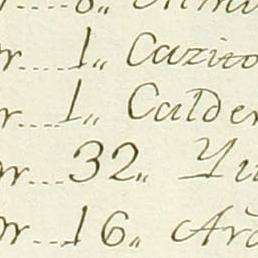 r....8,,
r...1,, Cazito
r...1,, Calder
or...32,, Yu
or...16,, Ara